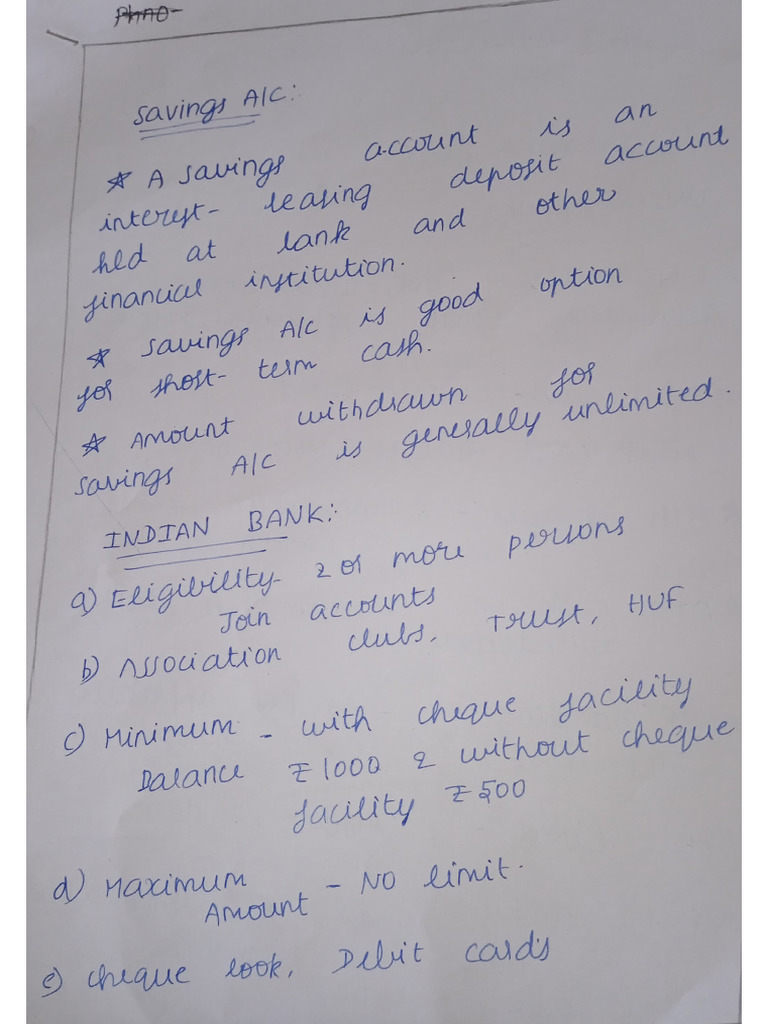 Phno-
Savings A/C:
☆ A savings account is an
interest- bearing deposit account
held at bank and other
financial institution.
☆ Savings A/C is good option
for short- term cash.
☆ Amount withdrawn for
savings A/C is generally unlimited.
INDIAN BANK:
a) Eligibility- 2 or more persons
Join accounts
b) Association clubs, Trust, HUF
c) Minimum - with cheque facility
Balance ₹1000 & without cheque
facility ₹500
d) Maximum
Amount - NO limit.
e) cheque book, Debit cards